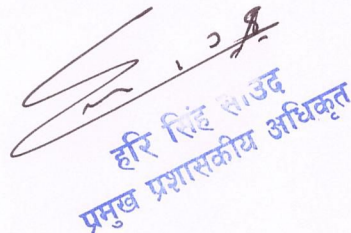 हरि सिंह साउद
प्रमुख प्रशासकीय अधिकृत